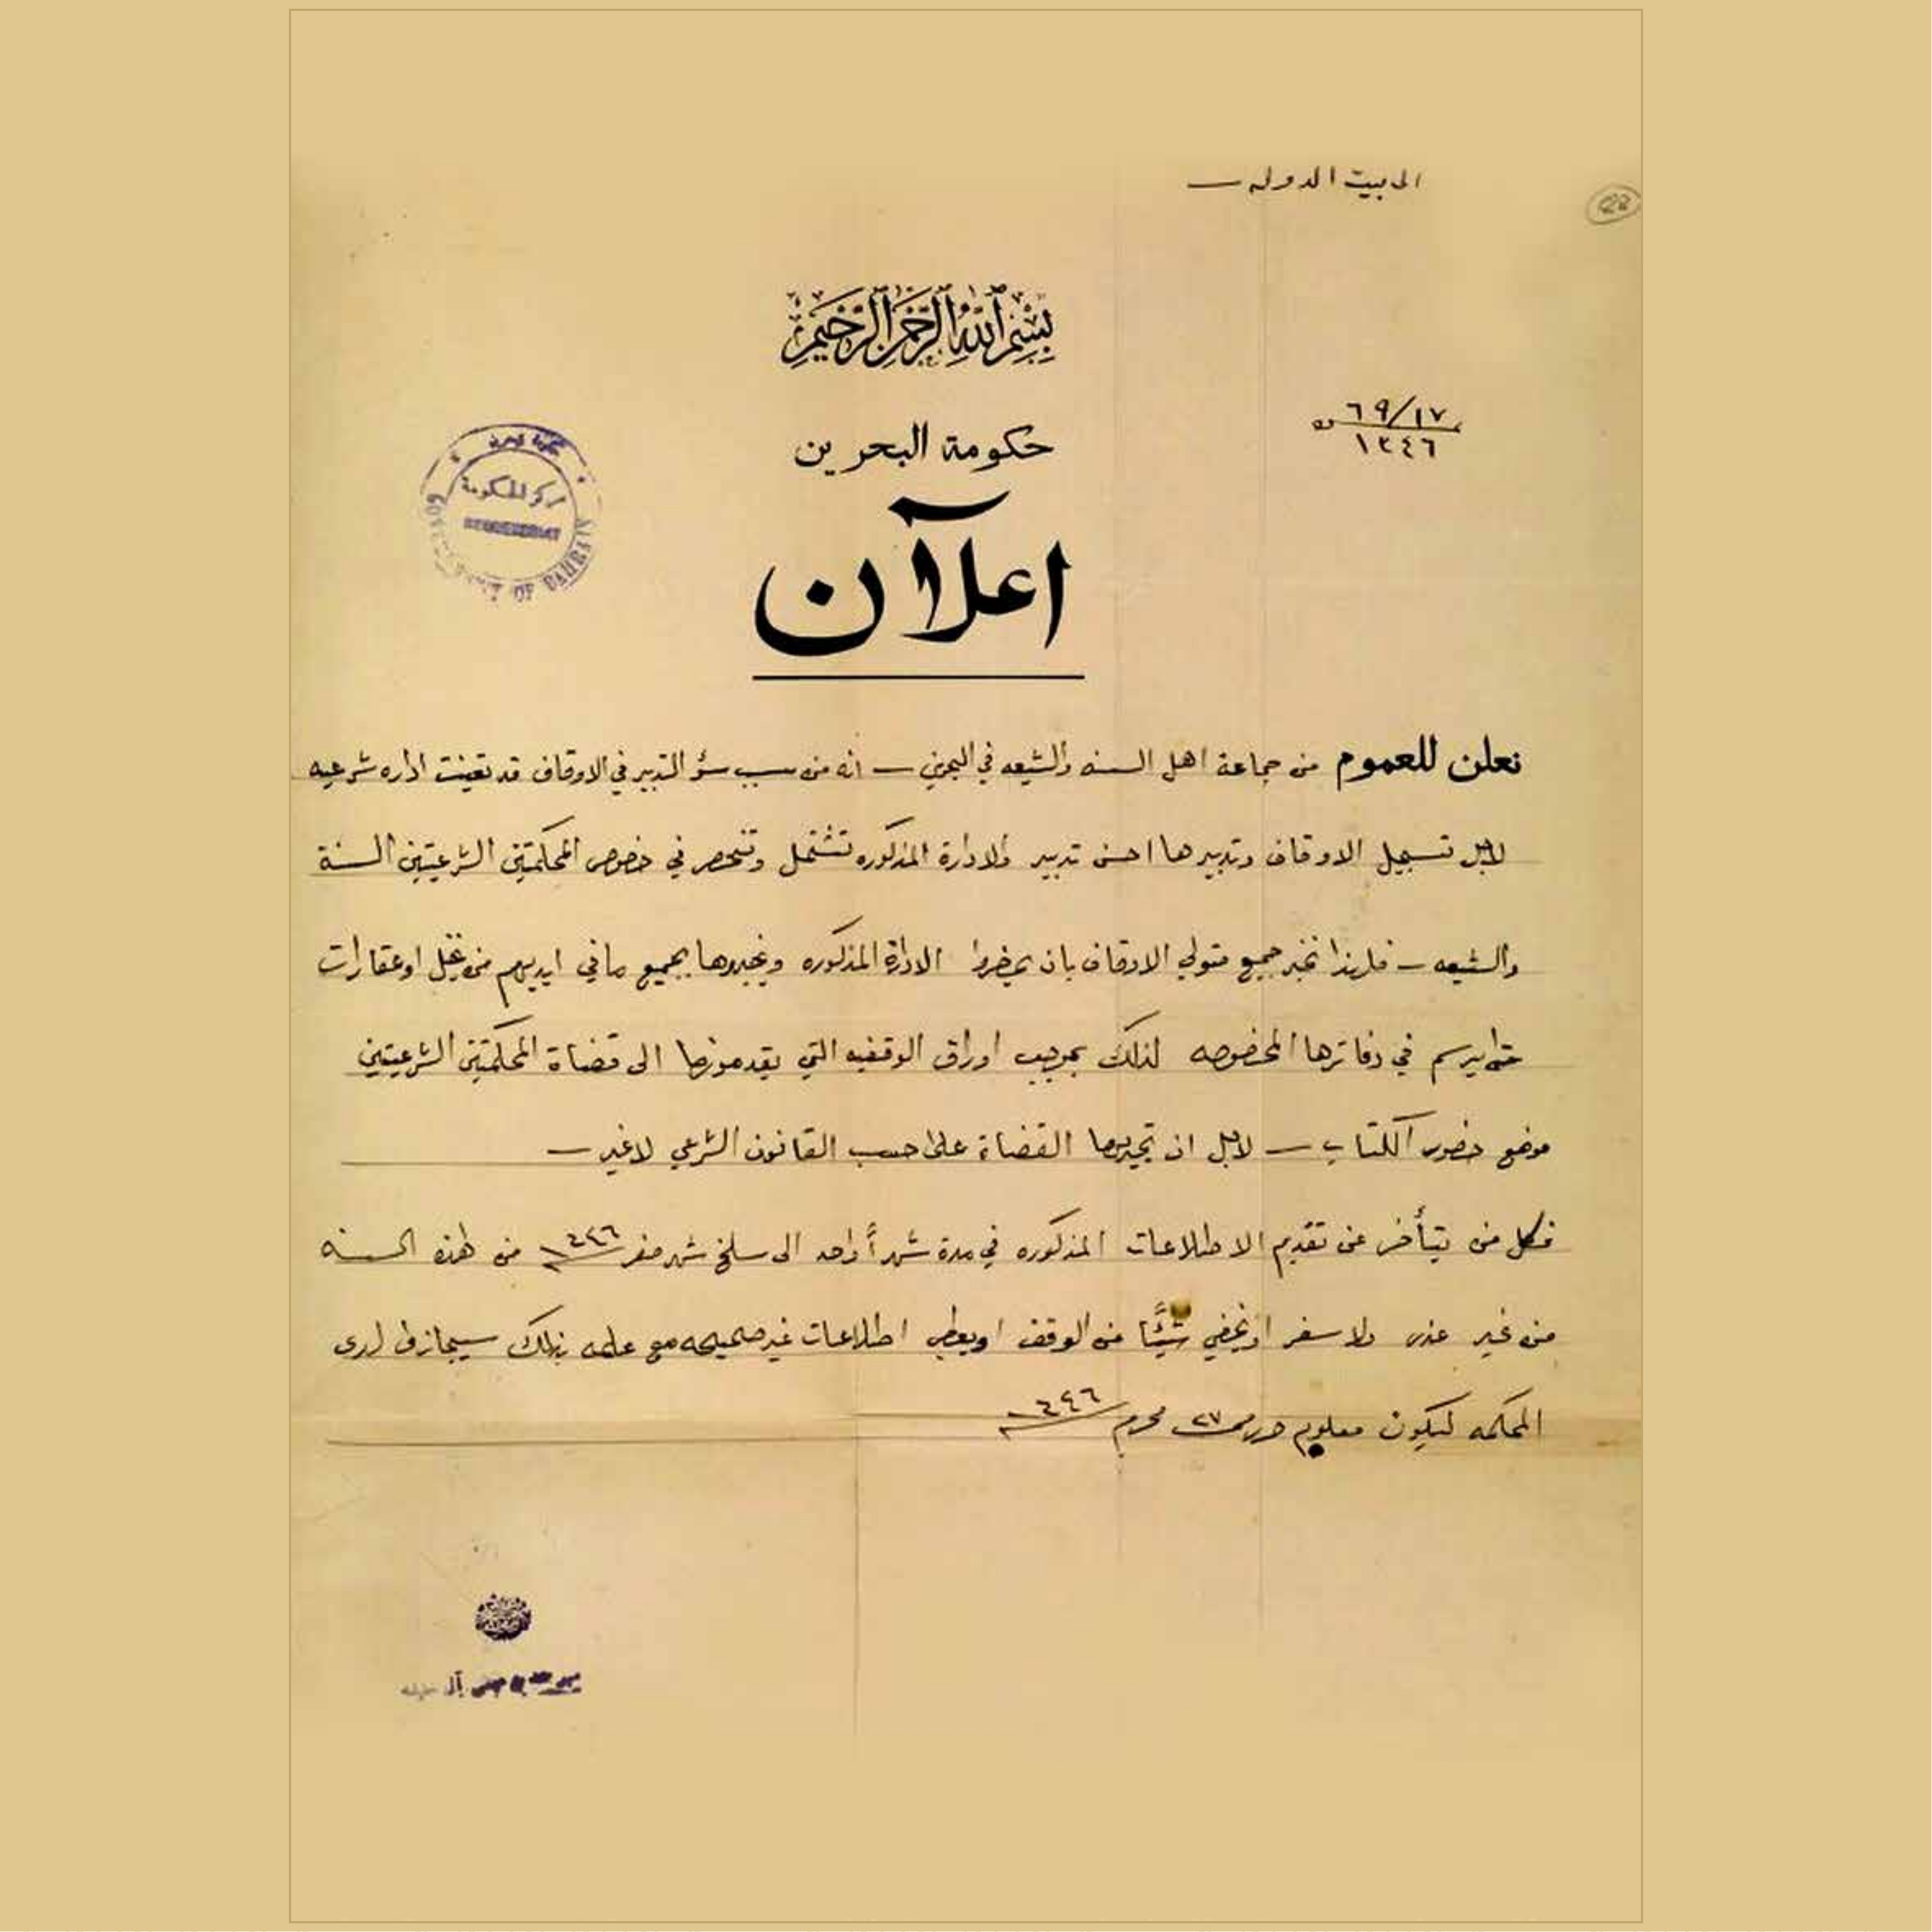 الى بيت الدوله —
بسم الله الرحمن الرحيم
٦٩/١٧
١٣٤٦
حكومة البحرين
مركز الحكومة
GOVERNMENT OF BAHREIN
اعلآن
نعلن للعموم من جماعة اهل السنه والشيعه في البحرين — انه من سبب سؤ التدبير في الاوقاف قد تعينت اداره شرعيه
لاجل تسجيل الاوقاف وتدبيرها احسن تدبير والادارة المذكوره تشتمل وتنحصر في خصوص المحكمتين الشرعيتين السنة
والشيعه — فلهذا نخبر جميع متولي الاوقاف بان يحضروا الادارة المذكوره ويخبروها بجميع مافي ايديهم من نخل او عقارات
حتى يرسم في دفاترها المخصوصه لذلك بموجب اوراق الوقفيه التي يقدمونها الى قضاة المحكمتين الشرعيتين
موضع حضور الكتاب — لاجل ان تجريها القضاة على حسب القانون الشرعي لاغير —
فكل من يتأخر عن تقديم الاطلاعات المذكوره في مدة شهراً واحد الى سلخ شهر صفر ١٣٤٦ من هذه السنه
من غير عذر ولا سفر او يخفي شيئاً من الوقف او يعطي اطلاعات غير صحيحه مع علمه بذلك سيجازى لدى
المحكمه ليكون معلوم حرر في ٢٧ محرم ١٣٤٦
آل خليفه